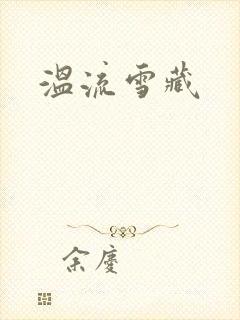 溫流雪藏
余慶